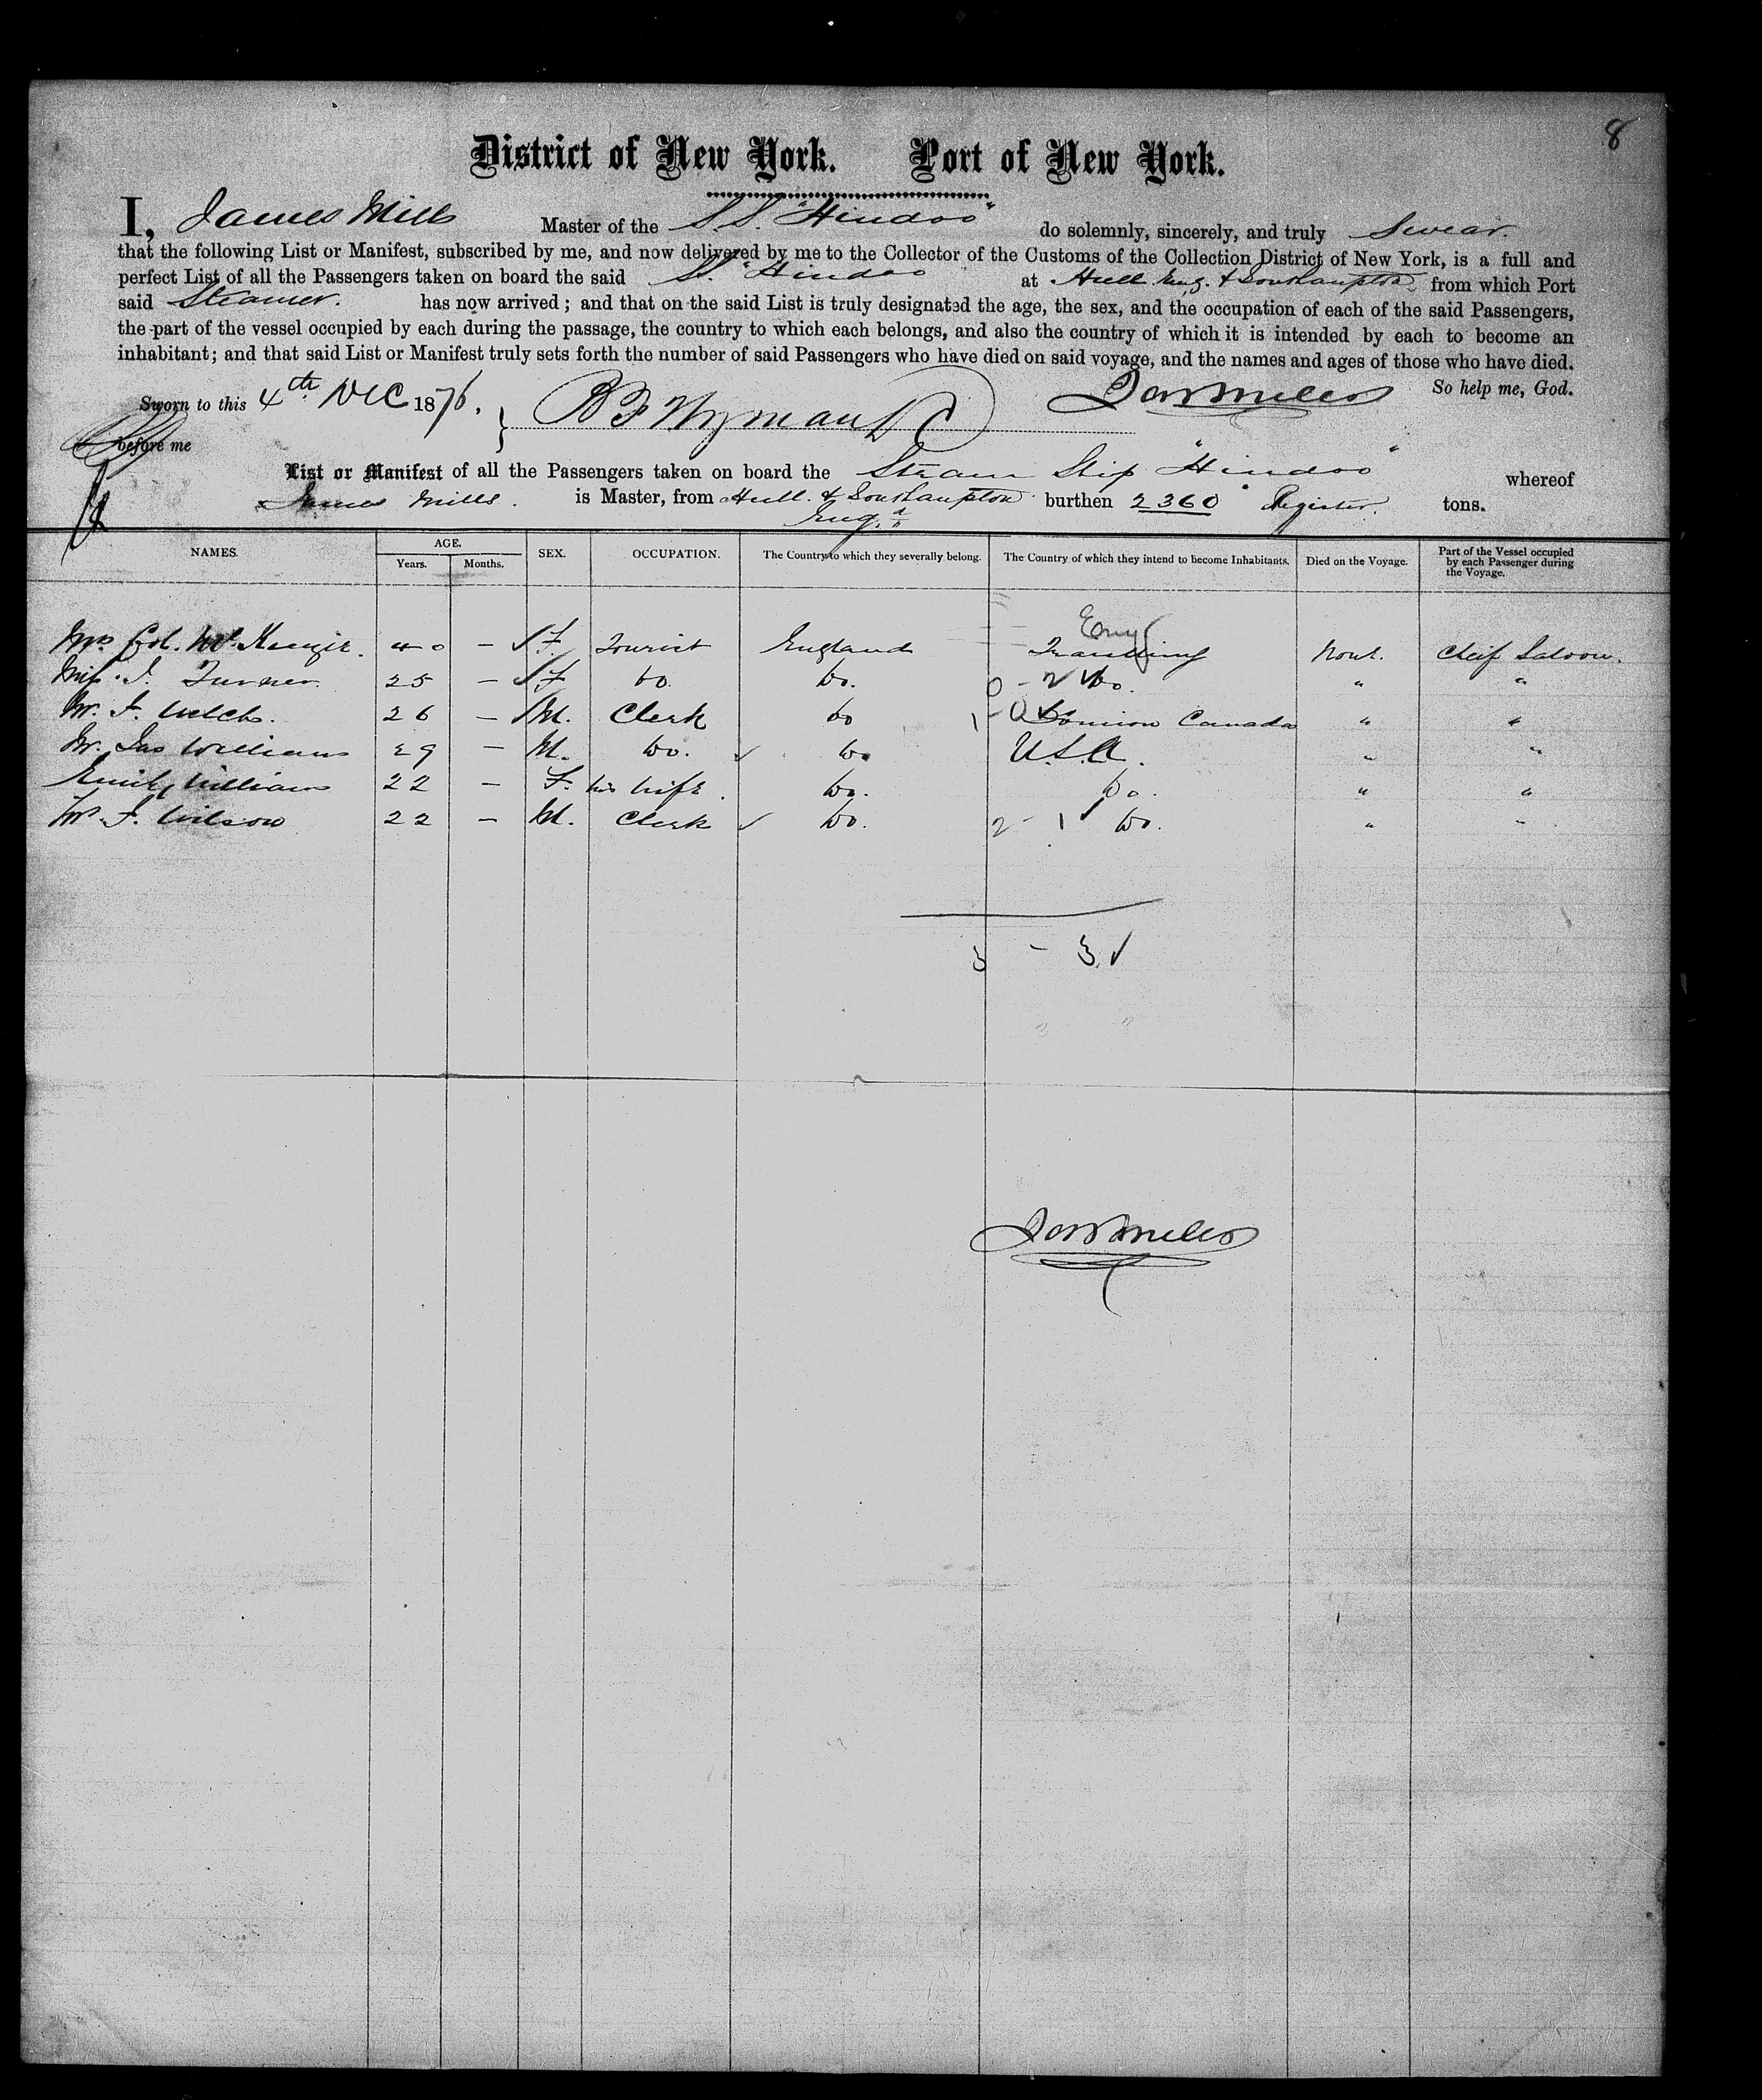 8
District of New York. Port of New York.
I, James Mills Master of the S.S. "Hindoo" do solemnly, sincerely, and truly Swear.
that the following List or Manifest, subscribed by me, and now delivered by me to the Collector of the Customs of the Collection District of New York, is a full and
perfect List of all the Passengers taken on board the said SS. "Hindoo at Hull Eng. & Southampton from which Port
said Steamer. has now arrived; and that on the said List is truly designated the age, the sex, and the occupation of each of the said Passengers,
the part of the vessel occupied by each during the passage, the country to which each belongs, and also the country of which it is intended by each to become an
inhabitant; and that said List or Manifest truly sets forth the number of said Passengers who have died on said voyage, and the names and ages of those who have died.
Sworn to this 4th Dec 1876. } B F Wyman D C Jas Mills So help me, God.
before me
List or Manifest of all the Passengers taken on board the Steam Ship "Hindoo" whereof
James Mills. is Master, from Hull. & Southampton burthen 2360 Register. tons.
Eng.d
NAMES. AGE. SEX. OCCUPATION. The Country to which they severally belong. The Country of which they intend to become Inhabitants. Died on the Voyage. Part of the Vessel occupied by each Passenger during the Voyage.
Years. Months.
Eng
Mrs Col. McKenzie. 40 - F. Tourist England Travelling None. Cheif Saloon.
Miss J. Turner. 25 - F Do. Do. 0 - 2 Do. " "
Mr. F. Welch. 26 - M. Clerk Do 1 - 0 Domion Canada " "
Mr. Jas Williams 29 - M. Do. Do U.S.A. " "
Emily Williams 22 - F. his Wife. Do. Do. " "
Mr. F. Wilson 22 - M. Clerk Do. 2 - 1 Do. " "
3 - 3
Jas Mills